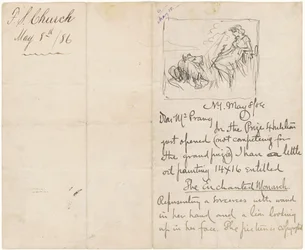 F. S. Church
May 8th / 86
N.Y. May 8/86
Dear Mr Prang
In the Prize Exhibition
just opened (not competing for
the grand prize) I have a little
oil painting 14x16 entitled
The Enchanted Monarch
Representing a sorceress with wand
in her hand and a lion looking
up in her face. The picture is